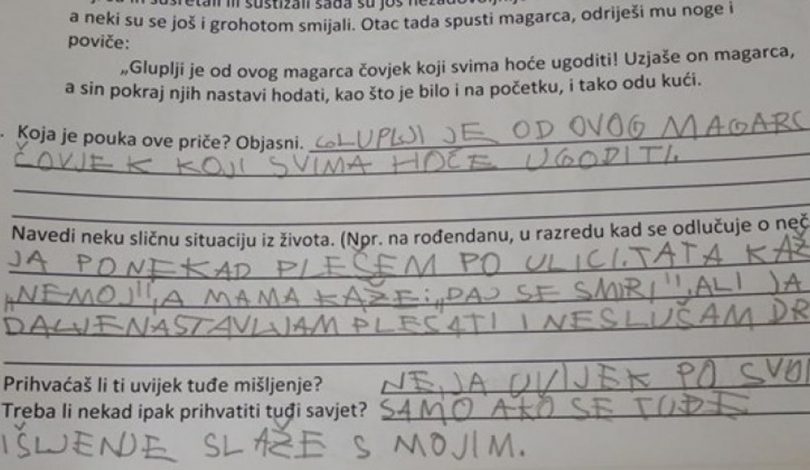 a neki su se još i grohotom smijali. Otac tada spusti magarca, odriješi mu noge i
poviče:
„Gluplji je od ovog magarca čovjek koji svima hoće ugoditi! Uzjaše on magarca,
a sin pokraj njih nastavi hodati, kao što je bilo i na početku, i tako odu kući.
. Koja je pouka ove priče? Objasni. GLUPLJI JE OD OVOG MAGARC
ČOVJEK KOJI SVIMA HOĆE UGODITI.
Navedi neku sličnu situaciju iz života. (Npr. na rođendanu, u razredu kad se odlučuje o neč
JA PONEKAD PLEŠEM PO ULICI. TATA KAŽ
„NEMOJ", A MAMA KAŽE: „DAJ SE SMIRI". ALI JA
DALJE NASTAVLJAM PLESATI I NE SLUŠAM DR
Prihvaćaš li ti uvijek tuđe mišljenje? NE, JA UVIJEK PO SVOM
Treba li nekad ipak prihvatiti tuđi savjet? SAMO AKO SE TUĐE
IŠLJENJE SLAŽE S MOJIM.